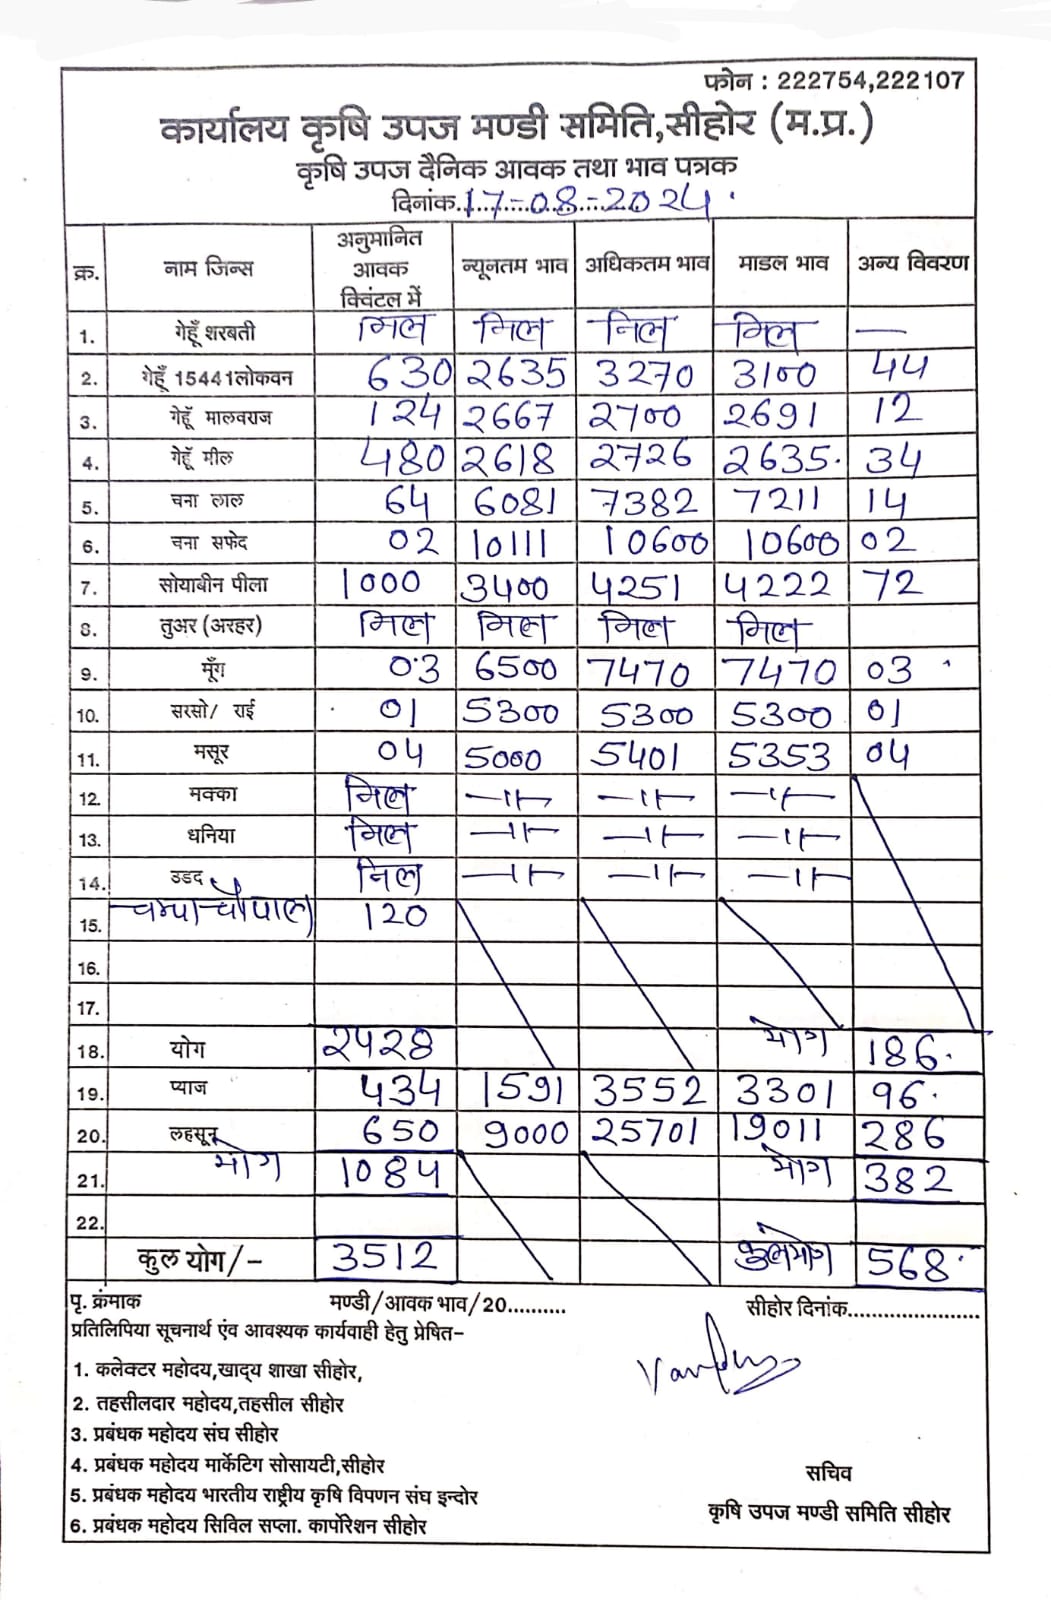 फोन : 222754,222107
कार्यालय कृषि उपज मण्डी समिति,सीहोर (म.प्र.)
कृषि उपज दैनिक आवक तथा भाव पत्रक
दिनांक.17-08-2024.
क्र. नाम जिन्स अनुमानित आवक क्विंटल में न्यूनतम भाव अधिकतम भाव माडल भाव अन्य विवरण
1. गेहूँ शरबती निल निल निल निल —
2. गेहूँ 15441लोकवन 630 2635 3270 3100 44
3. गेहूँ मालवराज 124 2667 2700 2691 12
4. गेहूँ मील 480 2618 2726 2635. 34
5. चना लाल 64 6081 7382 7211 14
6. चना सफेद 02 10111 10600 10600 02
7. सोयाबीन पीला 1000 3400 4251 4222 72
8. तुअर (अरहर) निल निल निल निल
9. मूँग 03 6500 7470 7470 03
10. सरसो/ राई 01 5300 5300 5300 01
11. मसूर 04 5000 5401 5353 04
12. मक्का निल —11— —11— —11—
13. धनिया निल —11— —11— —11—
14. उडद निल —11— —11— —11—
15. चना चौपाल 120
16.
17.
18. योग 2428 योग 186.
19. प्याज 434 1591 3552 3301 96.
20. लहसून 650 9000 25701 19011 286
21. योग 1084 योग 382
22.
कुल योग/- 3512 कुलयोग 568.
पृ. क्रंमाक मण्डी/आवक भाव/20.......... सीहोर दिनांक.......................
प्रतिलिपिया सूचनार्थ एंव आवश्यक कार्यवाही हेतु प्रेषित-
1. कलेक्टर महोदय,खाद्य शाखा सीहोर,
2. तहसीलदार महोदय,तहसील सीहोर
3. प्रबंधक महोदय संघ सीहोर
4. प्रबंधक महोदय मार्केटिग सोसायटी,सीहोर
5. प्रबंधक महोदय भारतीय राष्ट्रीय कृषि विपणन संघ इन्दोर
6. प्रबंधक महोदय सिविल सप्ला. कार्पोरेशन सीहोर
सचिव
कृषि उपज मण्डी समिति सीहोर